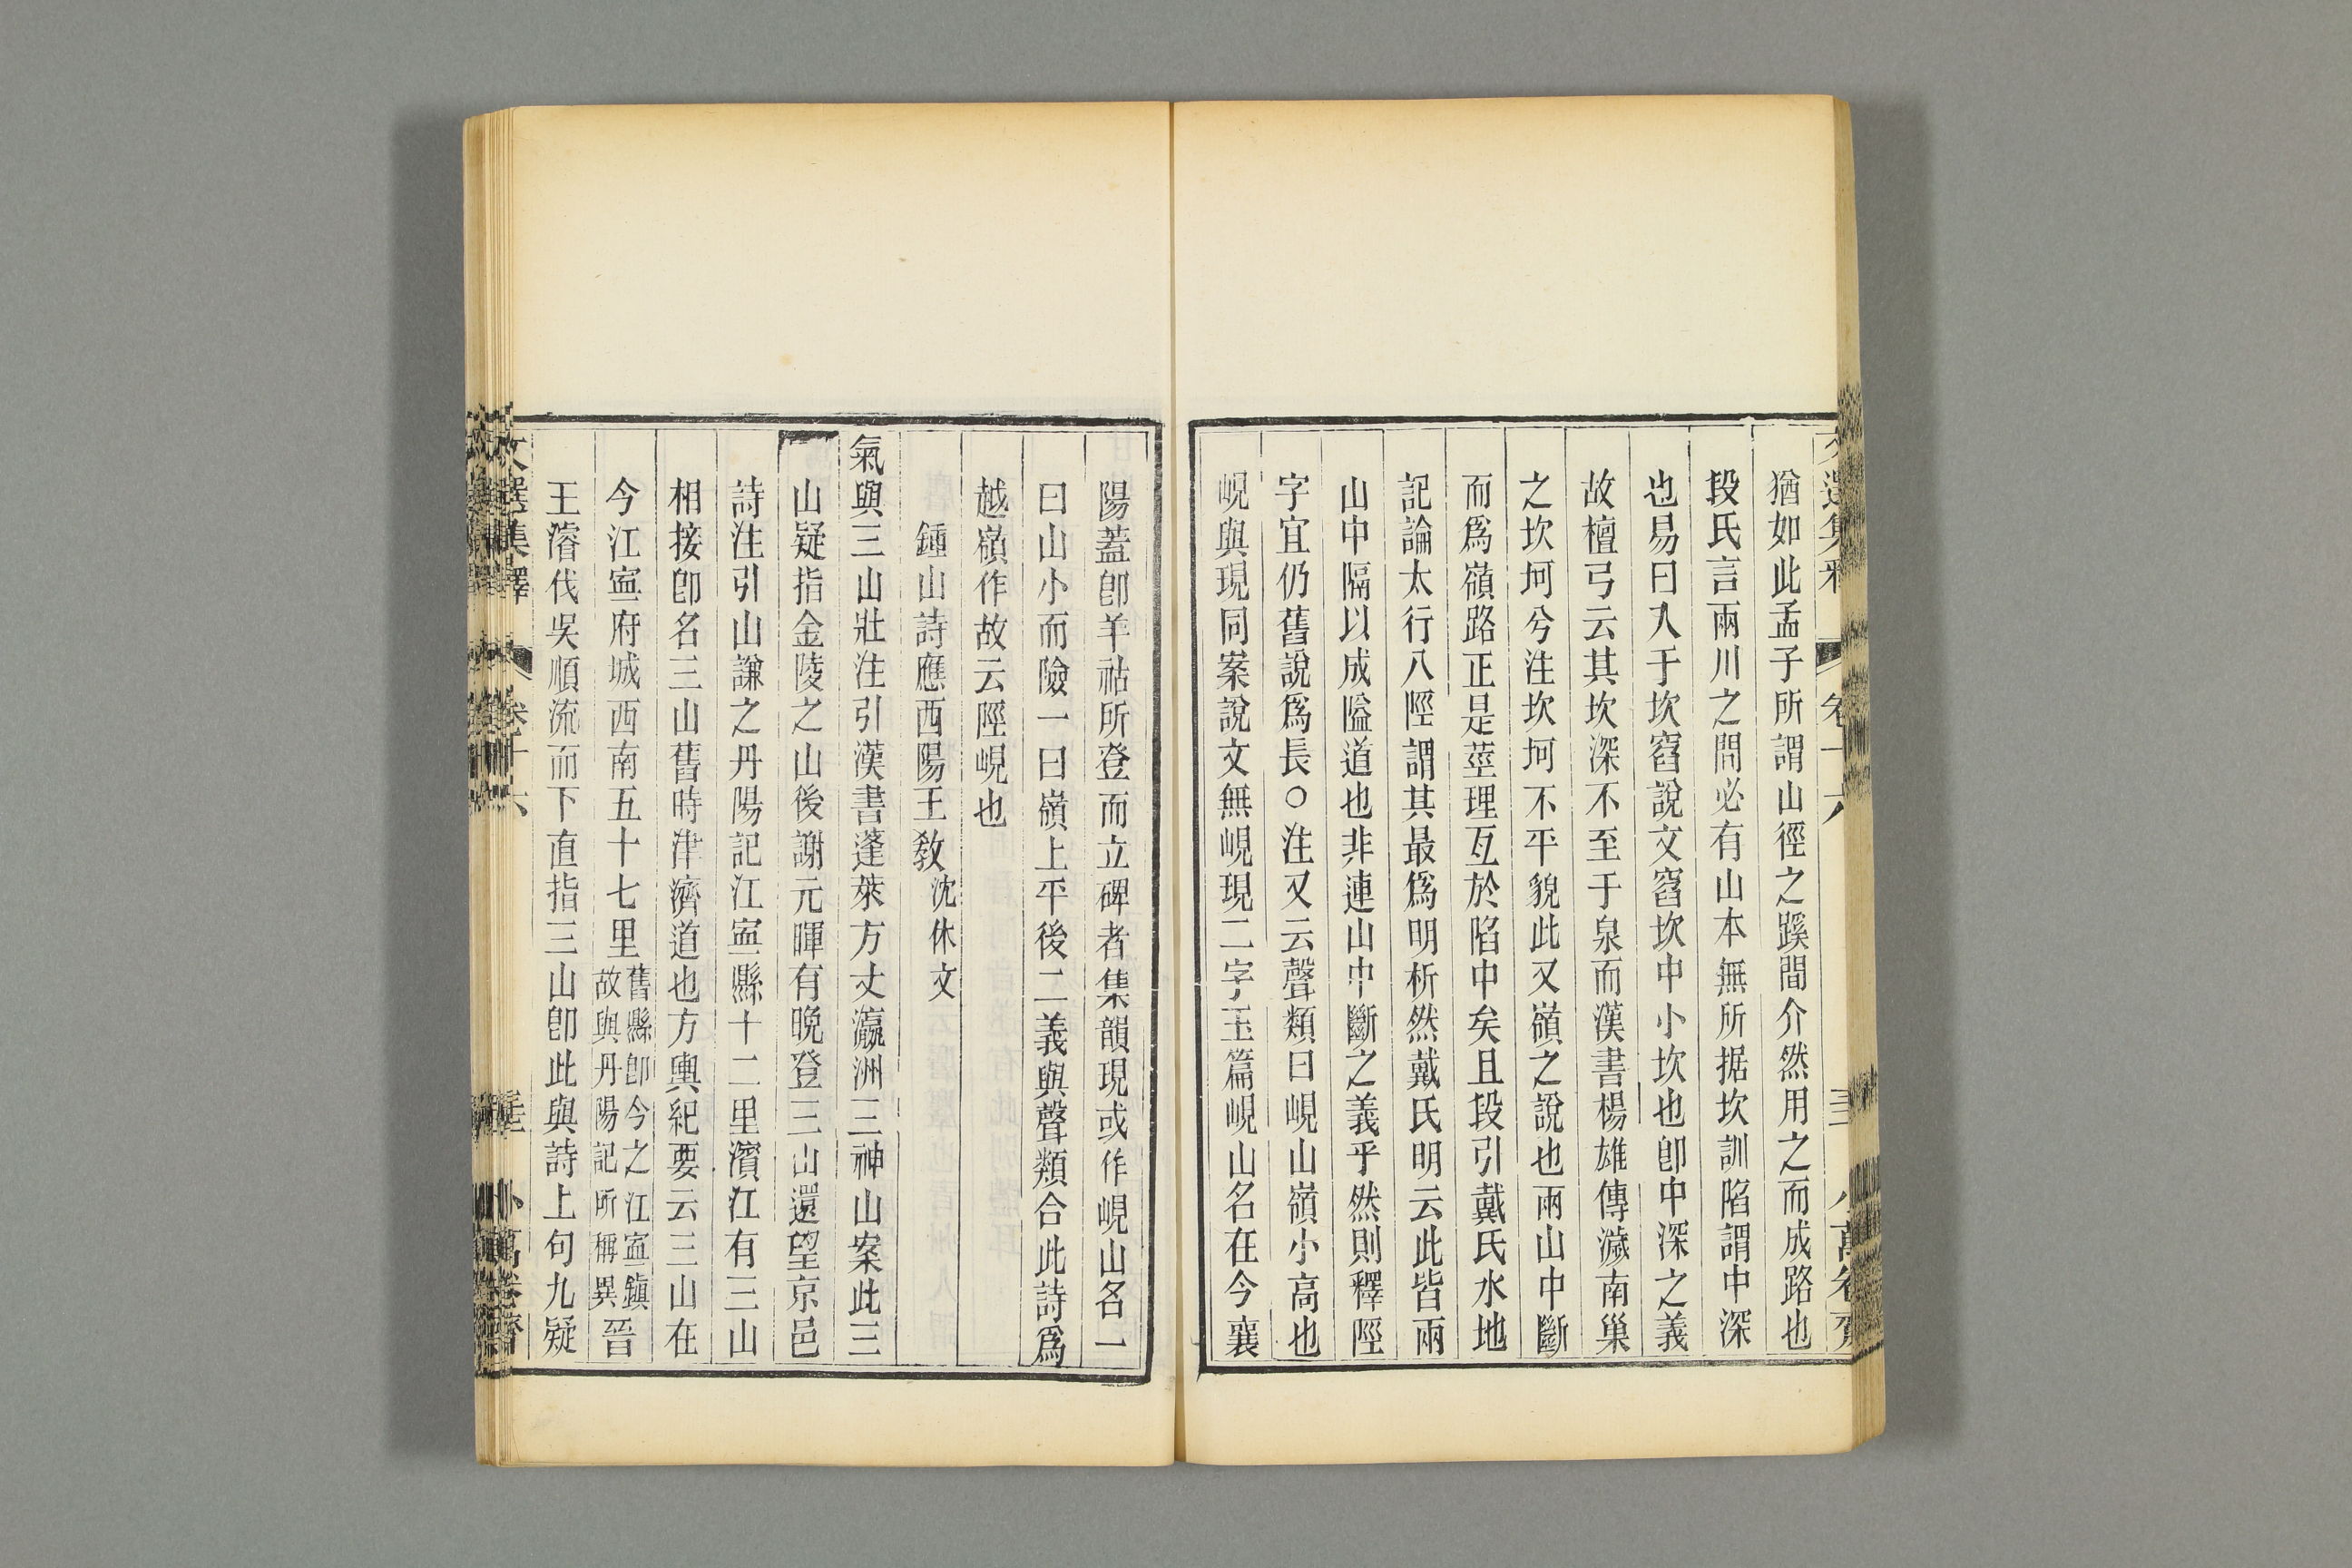 猶如此孟子所謂山徑之蹊間介然用之而成路也
段氏言兩川之間必有山本無所据坎訓陷謂中深
也易曰入于坎窞說文窞坎中小坎也卽中深之義
故檀弓云其坎深不至于泉而漢書楊雄傳濊南巢
之坎坷兮注坎坷不平貌此又嶺之說也兩山中斷
而爲嶺路正是莖理亙於陷中矣且段引戴氏水地
記論太行八陘謂其最爲明析然戴氏明云此皆兩
山中隔以成隘道也非連山中斷之義乎然則釋陘
字宜仍舊說爲長○注又云聲類曰峴山嶺小高也
峴與現同案說文無峴現二字玉篇峴山名在今襄
陽蓋卽羊祜所登而立碑者集韻現或作峴山名一
曰山小而險一曰嶺上平後二義與聲類合此詩爲
越嶺作故云陘峴也
鍾山詩應西陽王敎 沈休文
氣與三山壯注引漢書蓬萊方丈瀛洲三神山案此三
山疑指金陵之山後謝元暉有晚登三山還望京邑
詩注引山謙之丹陽記江寍縣十二里濱江有三山
相接卽名三山舊時津濟道也方輿紀要云三山在
今江寍府城西南五十七里 舊縣卽今之江寍鎭故與丹陽記所稱異 晉
王濬伐吳順流而下直指三山卽此與詩上句九疑
文選集釋 卷十六